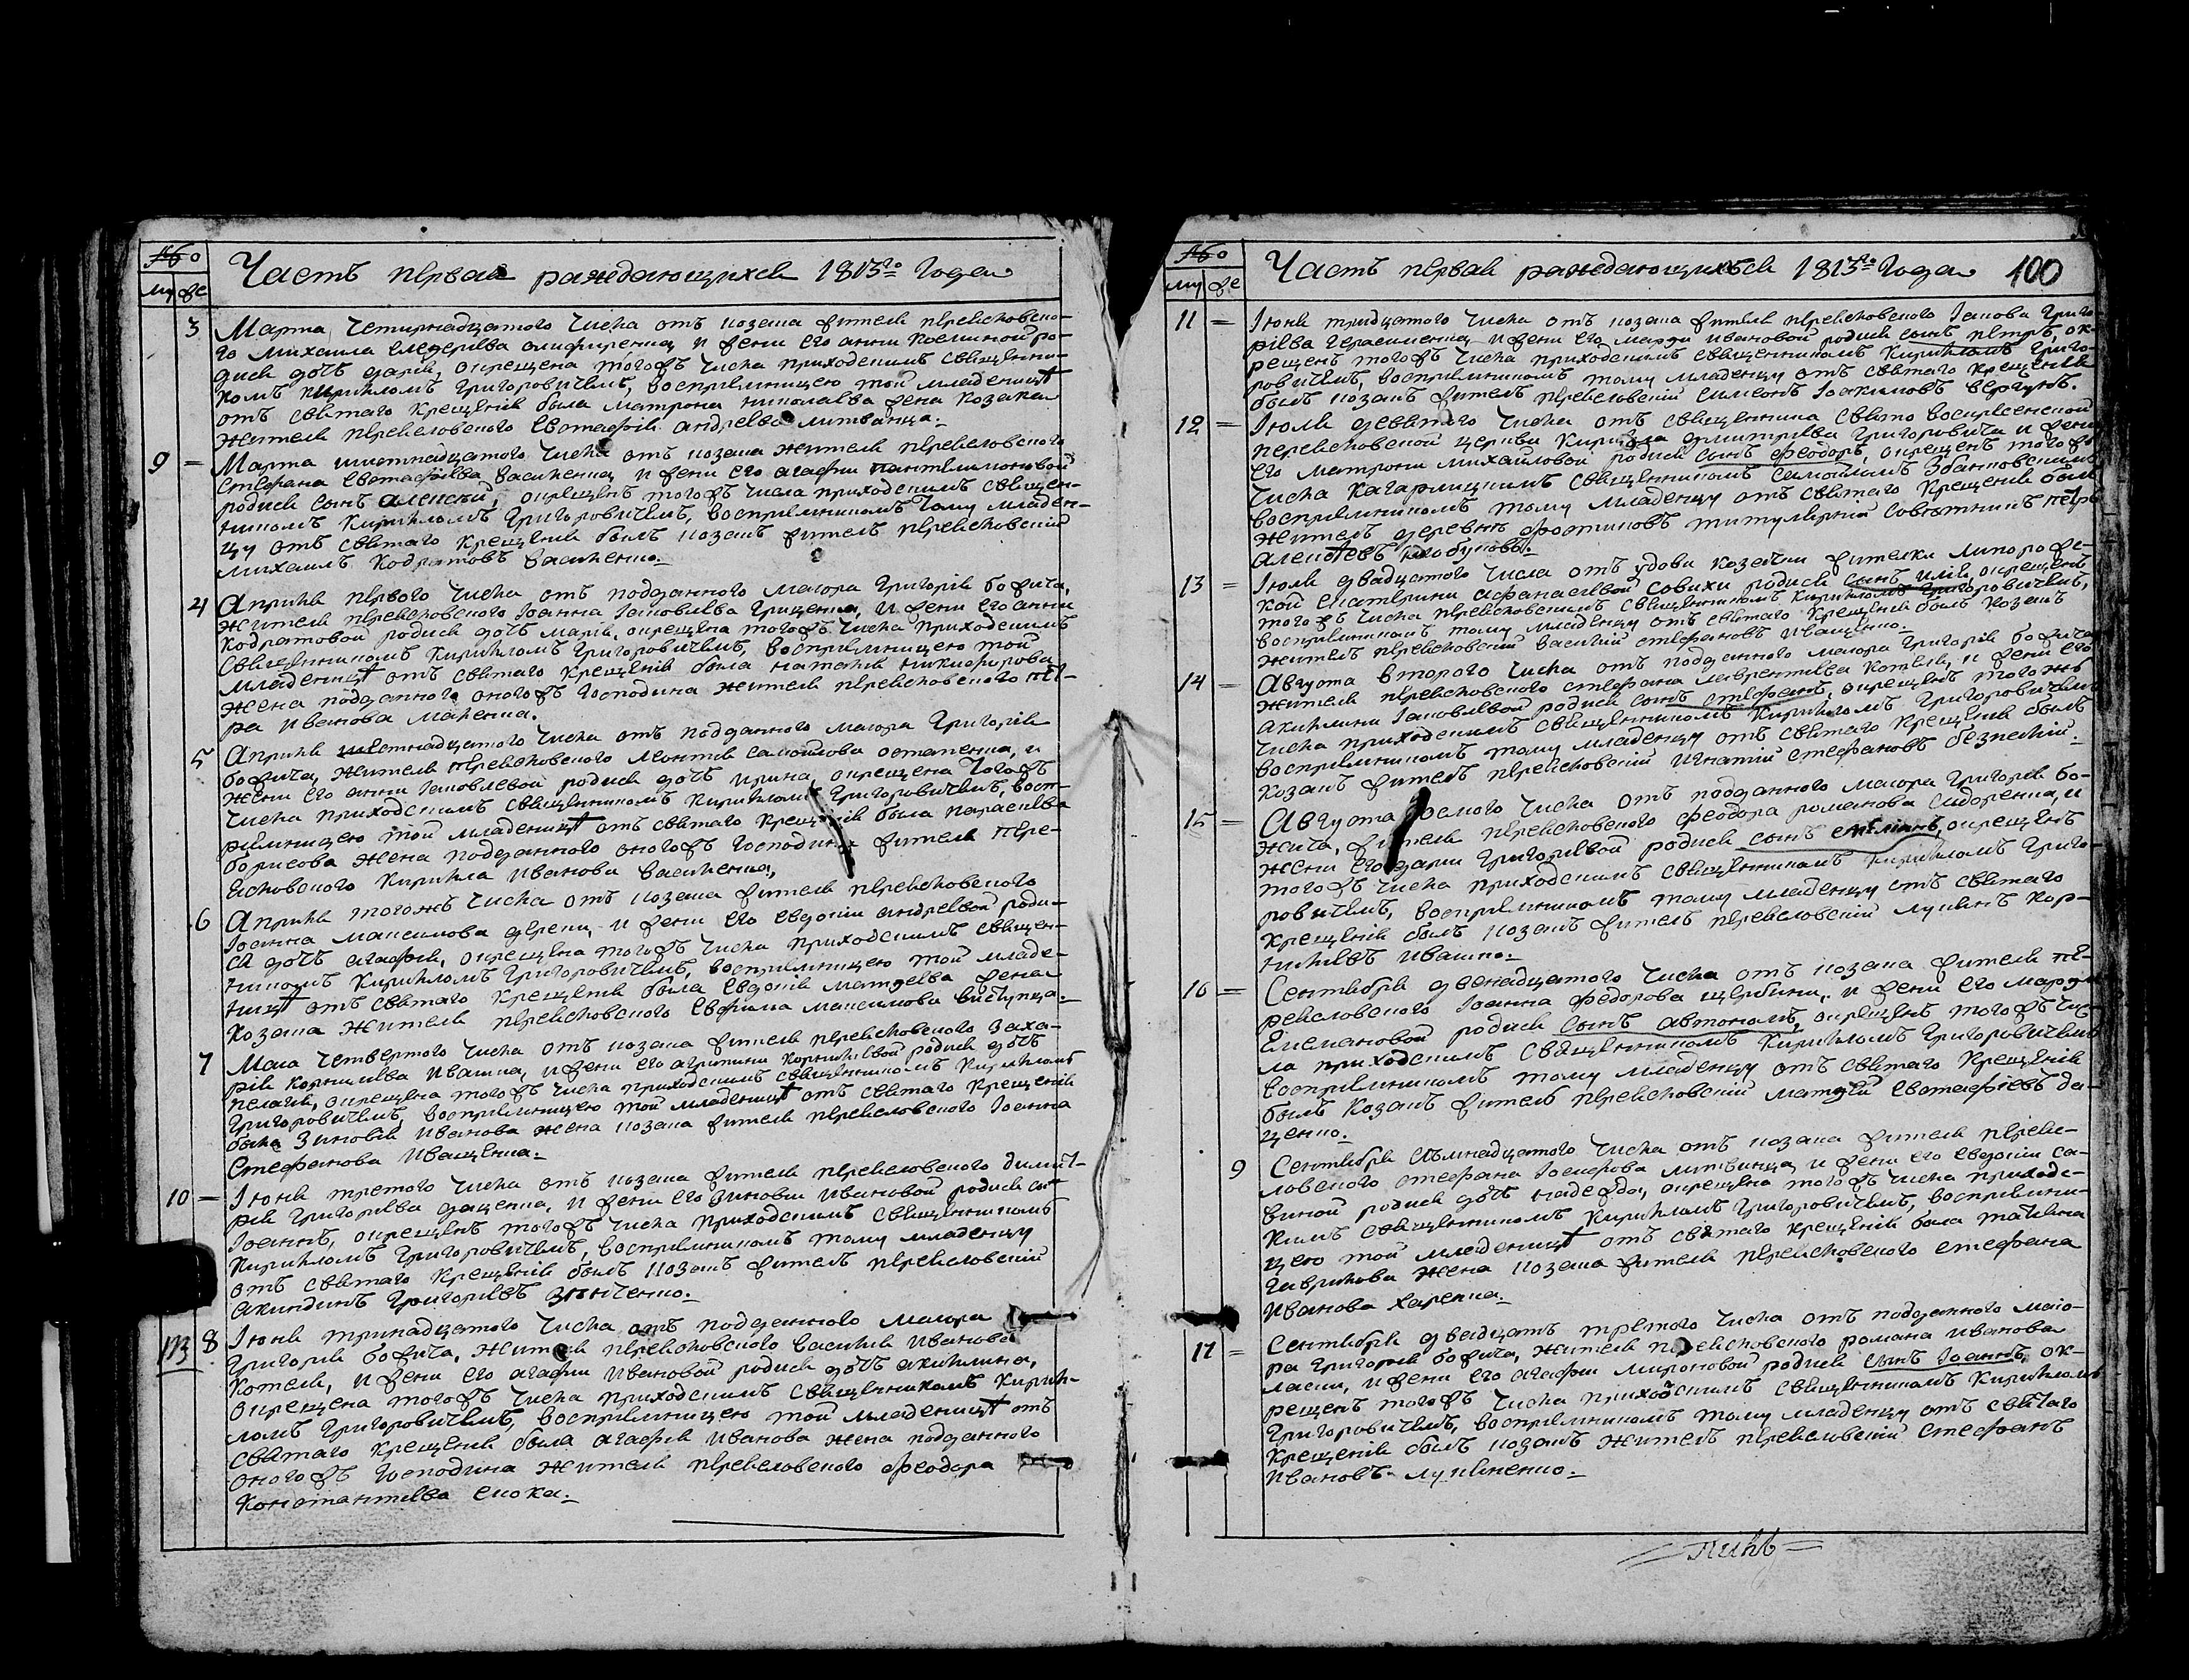 №о
му же
Часть первая раждающихся 1813го Года
3 Марта Четирнадцатого Числа отъ козака жителя переясловско-
го Михаила Сидеріева ференца и жени его анни Косминой ро-
дися дочъ дарія, окрещена тогожъ Числа приходскимъ священни-
комъ Кирилломъ Григоровичемъ, восприемницею той младеницѣ
отъ святаго крещенія была Матрона николаева жена козака
жителя переясловского Евстафія андреева литвинца.
9 Марта шистнадцатого Числа отъ козака жителя переясловского
Стефана Евстафіева Василенка и жени его агафіи пантелимоновой
родися синъ алексій, окрещенъ тогожъ числа приходскимъ священ-
никомъ Кирилломъ Григоровичемъ, восприемникомъ тому младен-
цу отъ святаго крещенія былъ козакъ житель переясловскій
Михаилъ Кодратовъ Василенко.
4 Априля первого Числа отъ подданного маіора Григорія божича,
жителя переясловского Іоанна Іаковлева Гриценка, и жени его анни
Кодратовой родися дочъ марія, окрещена тогожъ Числа приходскимъ
Священникомъ Кирилломъ Григоровичемъ, восприемницею той
младеницѣ отъ святаго крещенія была наталія никифорова
жена подданного оногожъ Господина жителя переясловского пет-
ра Иванова
5 Априля шестнадцатого Числа отъ подданного маіора Григорія
божича, жителя переясловского леонтія самойлова остапенка, и
жени его анни Іаковлевой родися дочъ ирина, окрещена тогожъ
Числа приходскимъ священникомъ Кирилломъ Григоровичемъ, восп-
риемницею той младеницѣ отъ святаго крещенія была параскева
борисова жена подданного оногожъ Господина жителя пере-
ясловского Кирилла Иванова Василенка,
6 Априля тогожъ Числа отъ козака жителя переясловского
Іоанна максимова и жени его евдокіи андреевой роди-
ся дочъ агафія, окрещена тогожъ Числа приходскимъ священ-
никомъ Кирилломъ Григоровичемъ, восприемницею той младе-
ницѣ отъ святаго крещенія была Евдокія матвеева жена
козака жителя переясловского Ефима максимова
7 Маія Четвертого Числа отъ козака жителя переясловского Заха-
рія корниліева Ивашка, и жени его агрипини Корниліевой родися дочъ
пелагія, окрещена тогожъ Числа приходскимъ священникомъ Кирилломъ
Григоровичемъ, восприемницею той младеницѣ отъ святаго крещенія
была Зиновія Иванова жена козака жителя переясловского Іоанна
Стефанова Иващенка.
10 Іюня третого Числа отъ козака жителя переясловского димит-
рія Григоріева даценка, и жени его Зиновіи Ивановой родися синъ
Іоаннъ, окрещенъ тогожъ Числа приходскимъ священникомъ
Кирилломъ Григоровичемъ, восприемникомъ тому младенцу
отъ святаго крещенія былъ козакъ житель переясловскій
акиндинъ Григоріевъ
8 Іюня тринадцатого Числа отъ подданного маіора
Григорія божича, жителя переясловского Василія Иванова
Котеля, и жени его агафіи Ивановой родися дочъ акилина,
окрещена тогожъ Числа приходскимъ священникомъ Кирил-
ломъ Григоровичемъ, восприемницею той младеницѣ отъ
святаго крещенія была агафія Иванова жена подданного
оногожъ Господина жителя переясловского феодора
Константіева скока.
№о
му же
Часть первая раждающихъся 1813го Года 100
11 Іюня тридцатого Числа отъ козака жителя переясловского Іакова Григо-
ріева Герасименка и жени его марфи Ивановой родися синъ петръ, ок-
рещенъ тогожъ Числа приходскимъ священникомъ Кирилломъ Григо-
ровичемъ, восприемникомъ тому младенцу отъ святаго крещенія
былъ козакъ житель переясловскій Симеонъ Іоакимовъ Вергунъ.
12 Іюля девятого Числа отъ священника свято Воскресенской
переясловской церкви Кирилла дмитріева Григоровича и жени
его матрони михайловой родися синъ феодоръ, окрещенъ тогожъ
Числа Кагарлицкимъ священникомъ Самойломъ
восприемникомъ тому младенцу отъ святаго крещенія былъ
житель деревнѣ титулярній совѣтникъ петръ
алексѣевъ
13 Іюля двадцатого Числа отъ удови козачки жителки
кой екатерини афанасиевой Совихи родися синъ илія, окрещенъ
тогожъ Числа переясловскимъ священникомъ Кирилломъ Григоровичемъ,
восприемникомъ тому младенцу отъ святаго крещенія былъ козакъ
житель переясловскій Василій стефановъ Иващенко.
14 Августа второго Числа отъ подданного маіора Григорія божича
жителя переясловского стефана лаврентіева Котеля, и жени его
акилини Іаковлевой родися синъ стефанъ, окрещенъ тогожъ
Числа приходскимъ священникомъ Кирилломъ Григоровичемъ
восприемникомъ тому младенцу отъ святаго крещенія былъ
козакъ житель переясловскій Игнатій стефановъ безпалій.
15 Августа осмого Числа отъ подданного маіора Григорія бо-
жича, жителя переясловского феодора романова Сидоренка, и
жени его даріи Григоріевой родися синъ емиліанъ, окрещенъ
тогожъ Числа приходскимъ священникомъ Кирилломъ Григо-
ровичемъ, восприемникомъ тому младенцу отъ святаго
крещенія былъ козакъ житель переясловскій лукіянъ кор-
ниліевъ Ивашко.
16 Сентября двенадцатого Числа отъ козака жителя пе-
реясловского Іоанна федорова щербини, и жени его марфи
родися синъ автономъ, окрещенъ тогожъ чис-
ла приходскимъ священникомъ Кирилломъ Григоровичемъ
восприемникомъ тому младенцу отъ святаго крещенія
былъ козакъ житель переясловскій матфей Евстафіевъ да-
ценко.
9 Сентября осьмнадцатого Числа отъ козака жителя переяс-
ловского стефана Іосифова литвинца, и жени его евдокіи са-
виной родися дочъ надежда, окрещена тогожъ Числа приходс-
кимъ священникомъ Кирилломъ Григоровичемъ, восприемни-
цею той младеницѣ отъ святаго крещенія была татіяна
Гаврилова жена козака жителя переясловского стефана
Иванова харченка.
17 Сентября двадцать третого Числа отъ подданного маіо-
ра Григорія божича, жителя переясловского романа Иванова
ласки, и жени его агафіи мироновой родися синъ Іоаннъ, ок-
рещенъ тогожъ Числа приходскимъ священникомъ Кирилломъ
Григоровичемъ, восприемникомъ тому младенцу отъ святаго
крещенія былъ козакъ житель переясловскій Стефанъ
Ивановъ лукяненко.